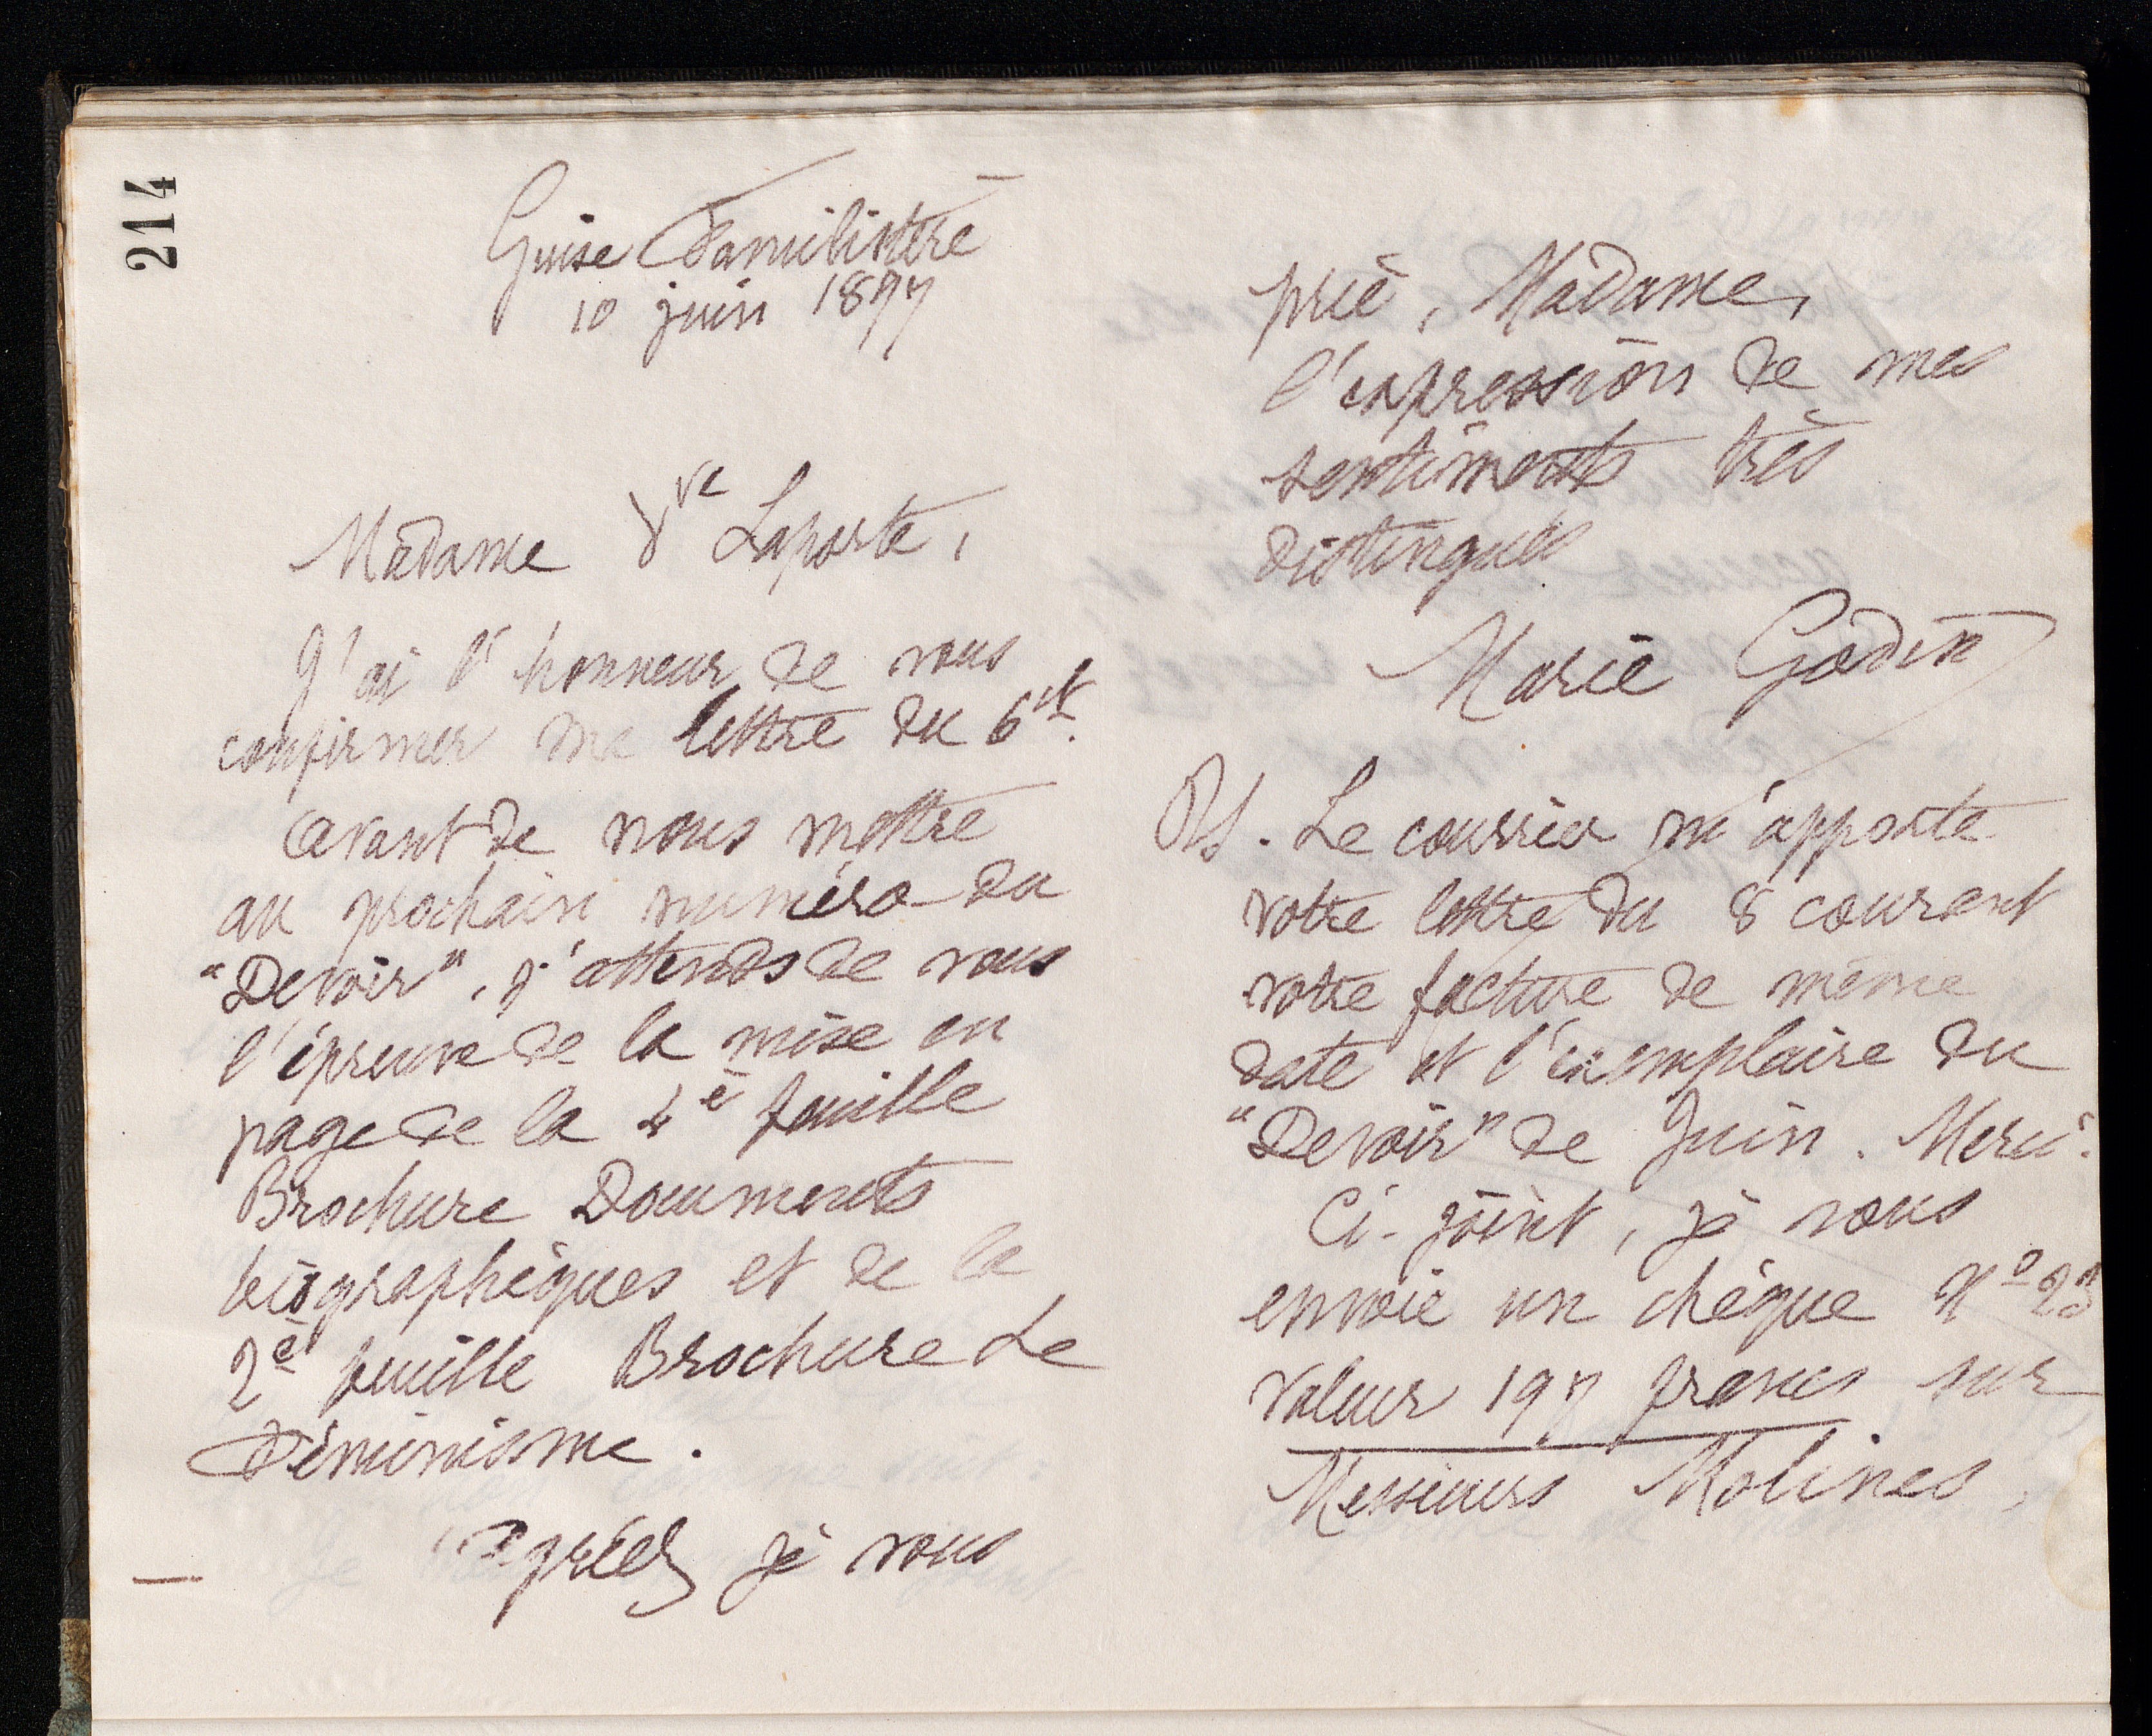 214
Guise Familistère
10 juin 1897
Madame Vve Laporte,
J'ai l'honneur de vous
confirmer ma lettre du 6 ct.
Avant de nous mettre
au prochain numéro du
"Devoir", j'attends de vous
l'épreuve de la mise en
page de la 4e feuille
Brochure Documents
biographiques et de la
2e feuille Brochure Le
Féminisme.
Agréez je vous
prie, Madame,
l'expression de mes
sentiments très
distingués
Marie Godin
PS. Le courrier m'apporte
votre lettre du 8 courant
votre facture de même
date et l'exemplaire du
"Devoir" de Juin. Merci.
Ci-joint, je vous
envoie un chèque No 23
valeur 197 francs, sur
Messieurs Molines,